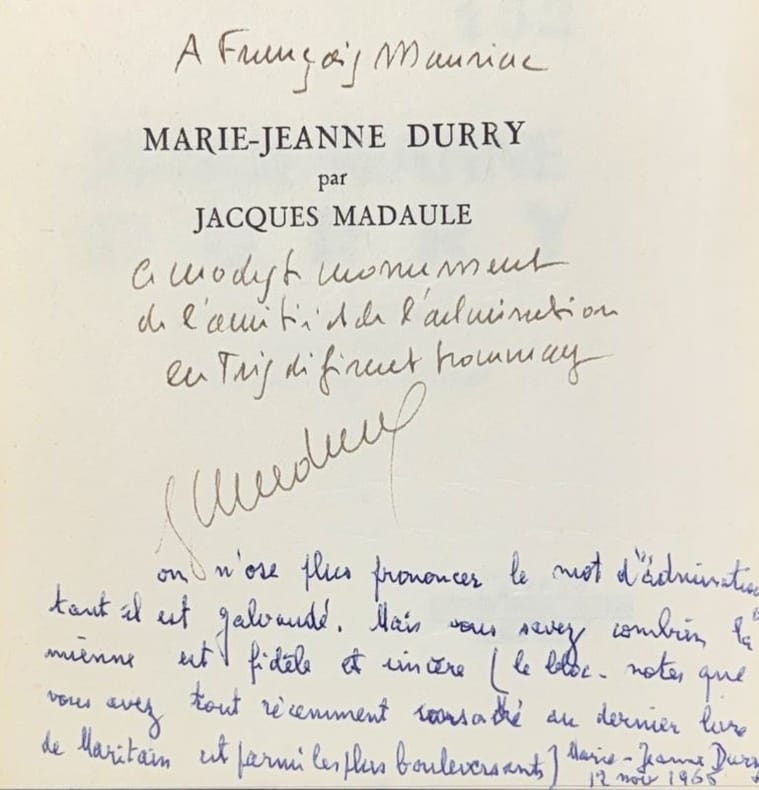 A François Mauriac
MARIE-JEANNE DURRY
par
JACQUES MADAULE
Ce modeste monument
de l'amitié et de l'admiration
en très déférent hommage
JMadaule
on n'ose plus prononcer le mot d'"admiration"
tant il est galvaudé. Mais vous savez combien la
mienne est fidèle et sincère (le bloc-notes que
vous avez tout récemment consacré au dernier livre
de Maritain est parmi les plus bouleversants) Marie-Jeanne Durry
12 nov 1966